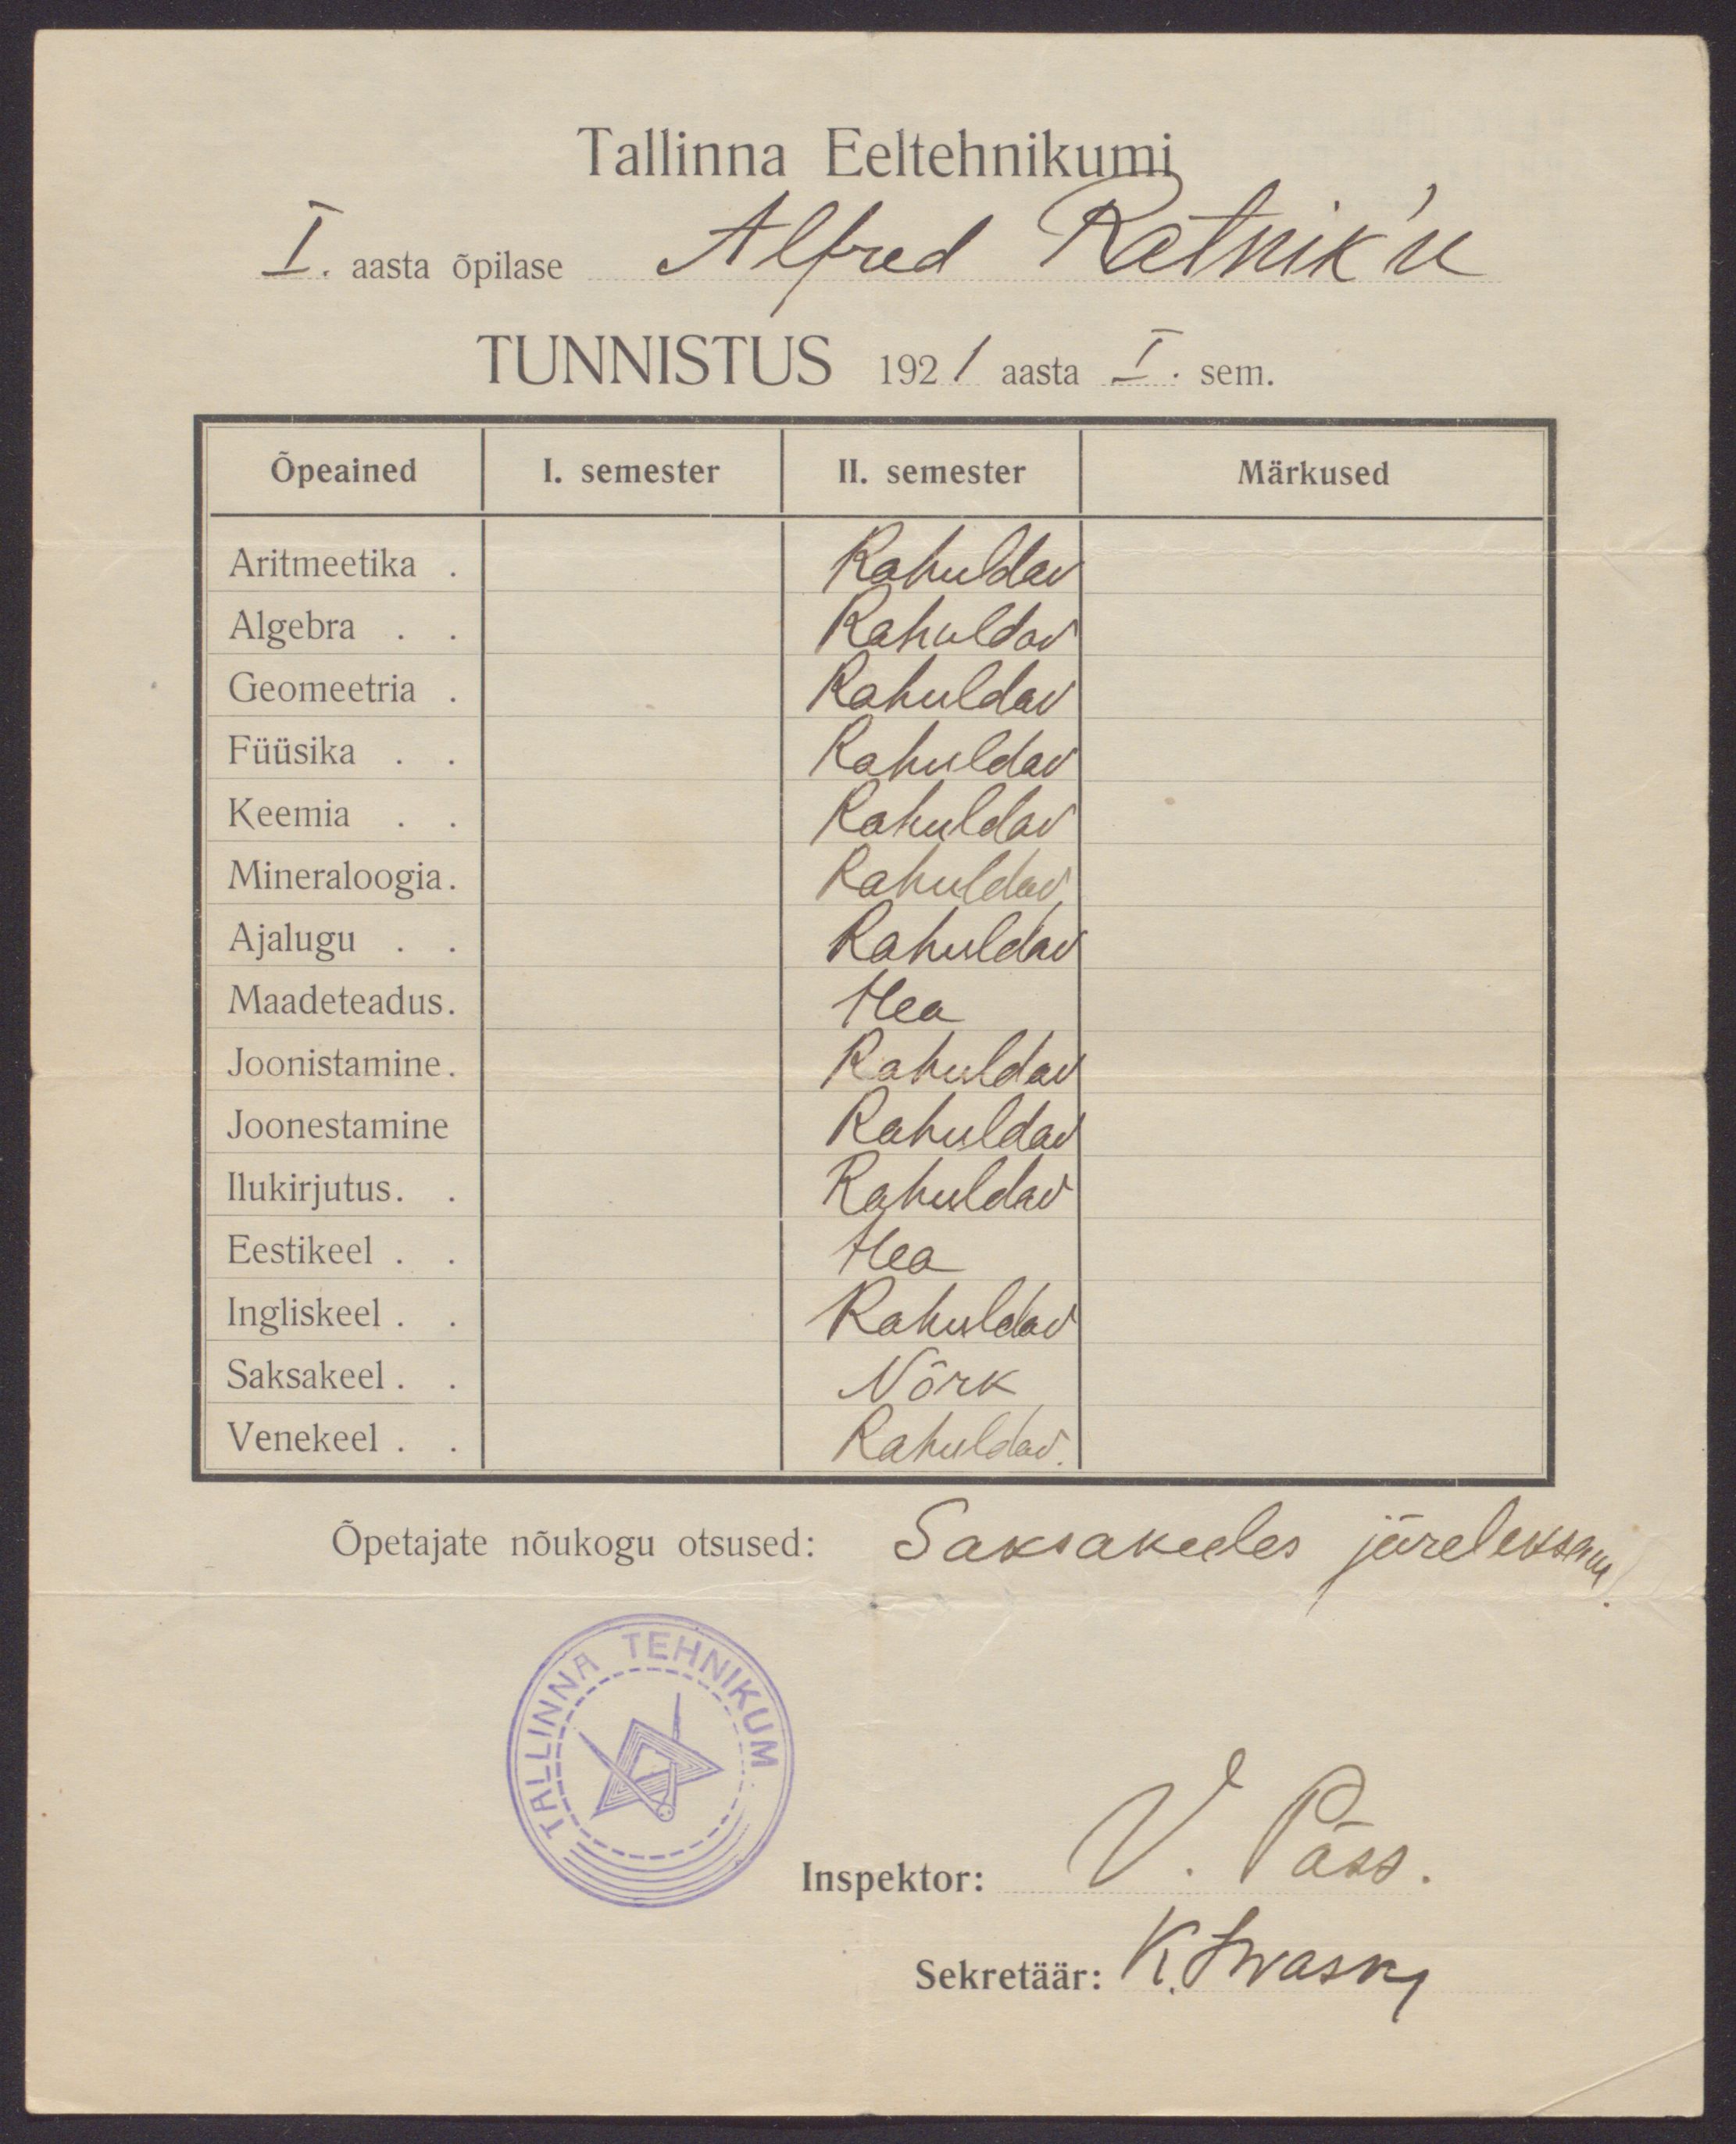 Tallinna Eeltehnikumi
I. aasta õpilase Alfred Ratnik'u
TUNNISTUS 1921 aasta I. sem.
Õpeained I. semester II. semester Märkused
Aritmeetika . Rahuldav
Algebra . . Rahuldav
Geomeetria . Rahuldav
Füüsika . . Rahuldav
Keemia . . Rahuldav
Mineraloogia. Rahuldav
Ajalugu . . Rahuldav
Maadeteadus. Hea
Joonistamine. Rahuldav
Joonestamine Rahuldav
Ilukirjutus. . Rahuldav
Eestikeel . . Hea
Ingliskeel . . Rahuldav
Saksakeel . . Nõrk
Venekeel . . Rahuldav.
Õpetajate nõukogu otsused: Saksakeeles järeleksam.
TALLINNA TEHNIKUM
Inspektor: V. Päss.
Sekretäär: K.